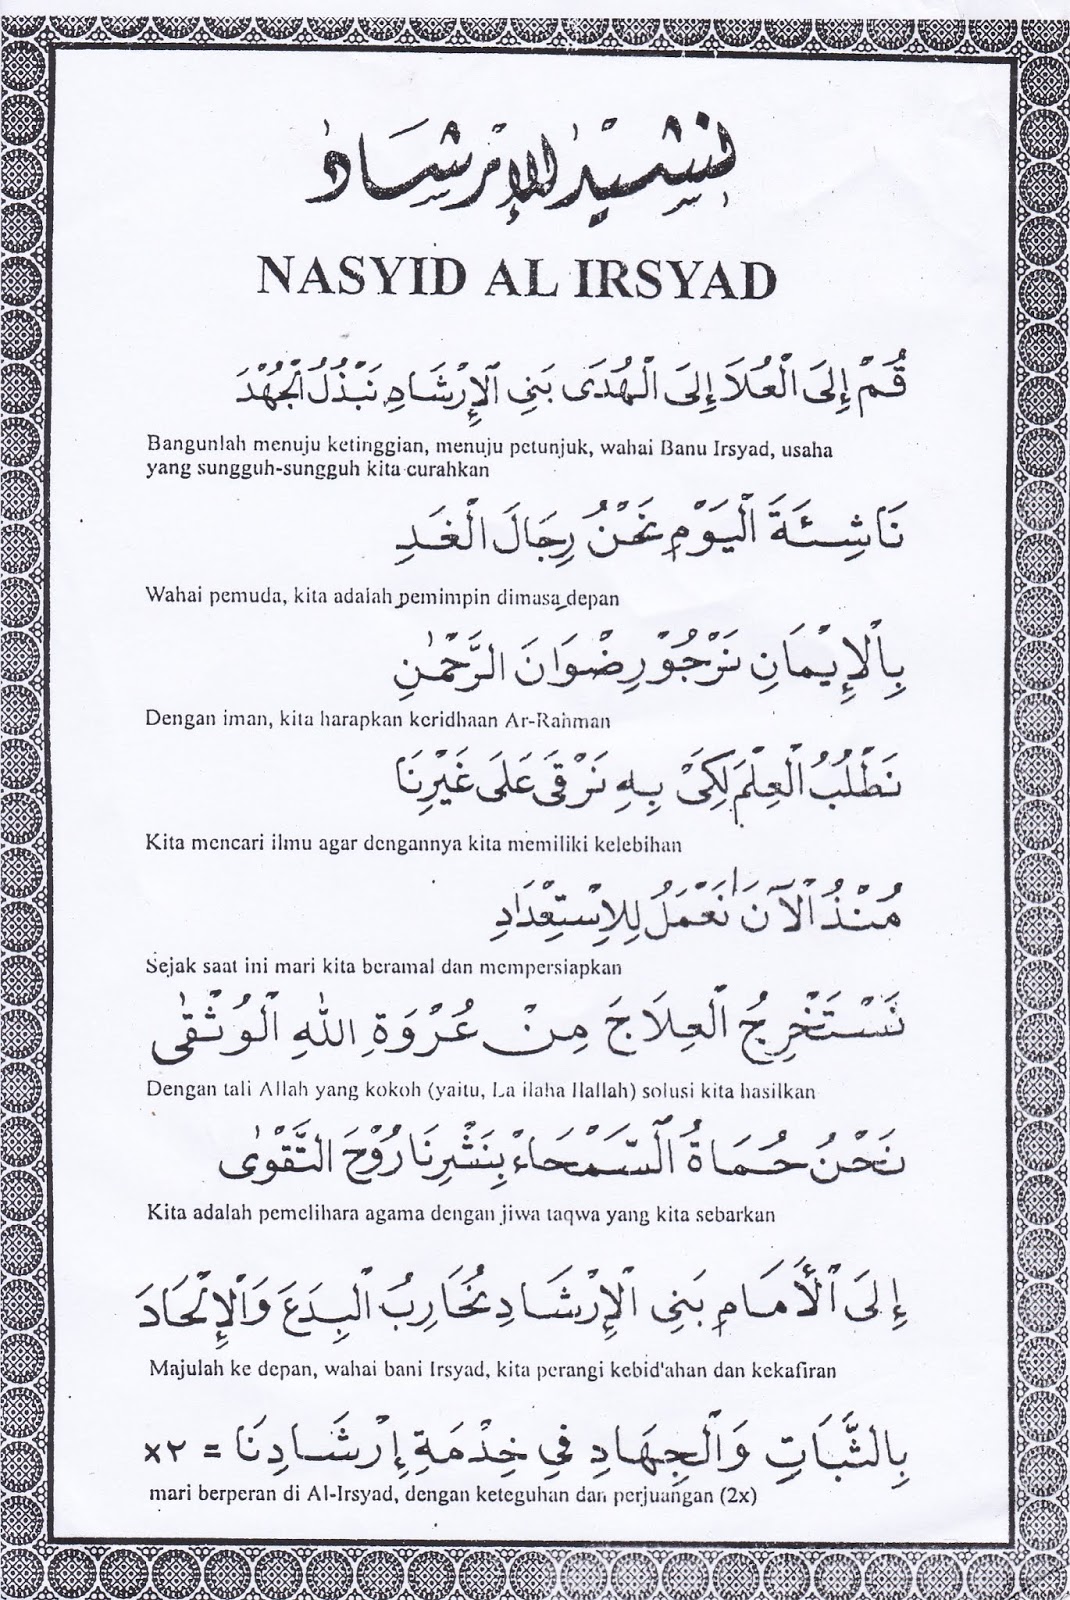 نشيد الإرشاد
NASYID AL IRSYAD
قُمْ إِلَى الْعُلَا إِلَى الْهُدَى بَنِي الْإِرْشَادِ نَبْذُلُ الْجُهْدَ
Bangunlah menuju ketinggian, menuju petunjuk, wahai Banu Irsyad, usaha
yang sungguh-sungguh kita curahkan
نَاشِئَةَ الْيَوْمِ نَحْنُ رِجَالَ الْغَدِ
Wahai pemuda, kita adalah pemimpin dimasa depan
بِالْإِيْمَانِ نَرْجُوْ رِضْوَانَ الرَّحْمٰنِ
Dengan iman, kita harapkan keridhaan Ar-Rahman
نَطْلُبُ الْعِلْمَ لِكَيْ بِهِ نَرْقَى عَلَى غَيْرِنَا
Kita mencari ilmu agar dengannya kita memiliki kelebihan
مُنْذُ الْآنَ نَعْمَلُ لِلْاِسْتِعْدَادِ
Sejak saat ini mari kita beramal dan mempersiapkan
نَسْتَخْرِجُ الْعِلَاجَ مِنْ عُرْوَةِ اللّٰهِ الْوُثْقٰى
Dengan tali Allah yang kokoh (yaitu, La ilaha Ilallah) solusi kita hasilkan
نَحْنُ حُمَاةُ السَّمْحَاءْ بِنَشْرِنَا رُوْحَ التَّقْوٰى
Kita adalah pemelihara agama dengan jiwa taqwa yang kita sebarkan
إِلَى الْأَمَامِ بَنِي الْإِرْشَادِ نُحَارِبُ الْبِدَعَ وَالْإِلْحَادَ
Majulah ke depan, wahai bani Irsyad, kita perangi kebid'ahan dan kekafiran
بِالثَّبَاتِ وَالْجِهَادِ فِي خِدْمَةِ إِرْشَادِنَا = ٢×
mari berperan di Al-Irsyad, dengan keteguhan dan perjuangan (2x)